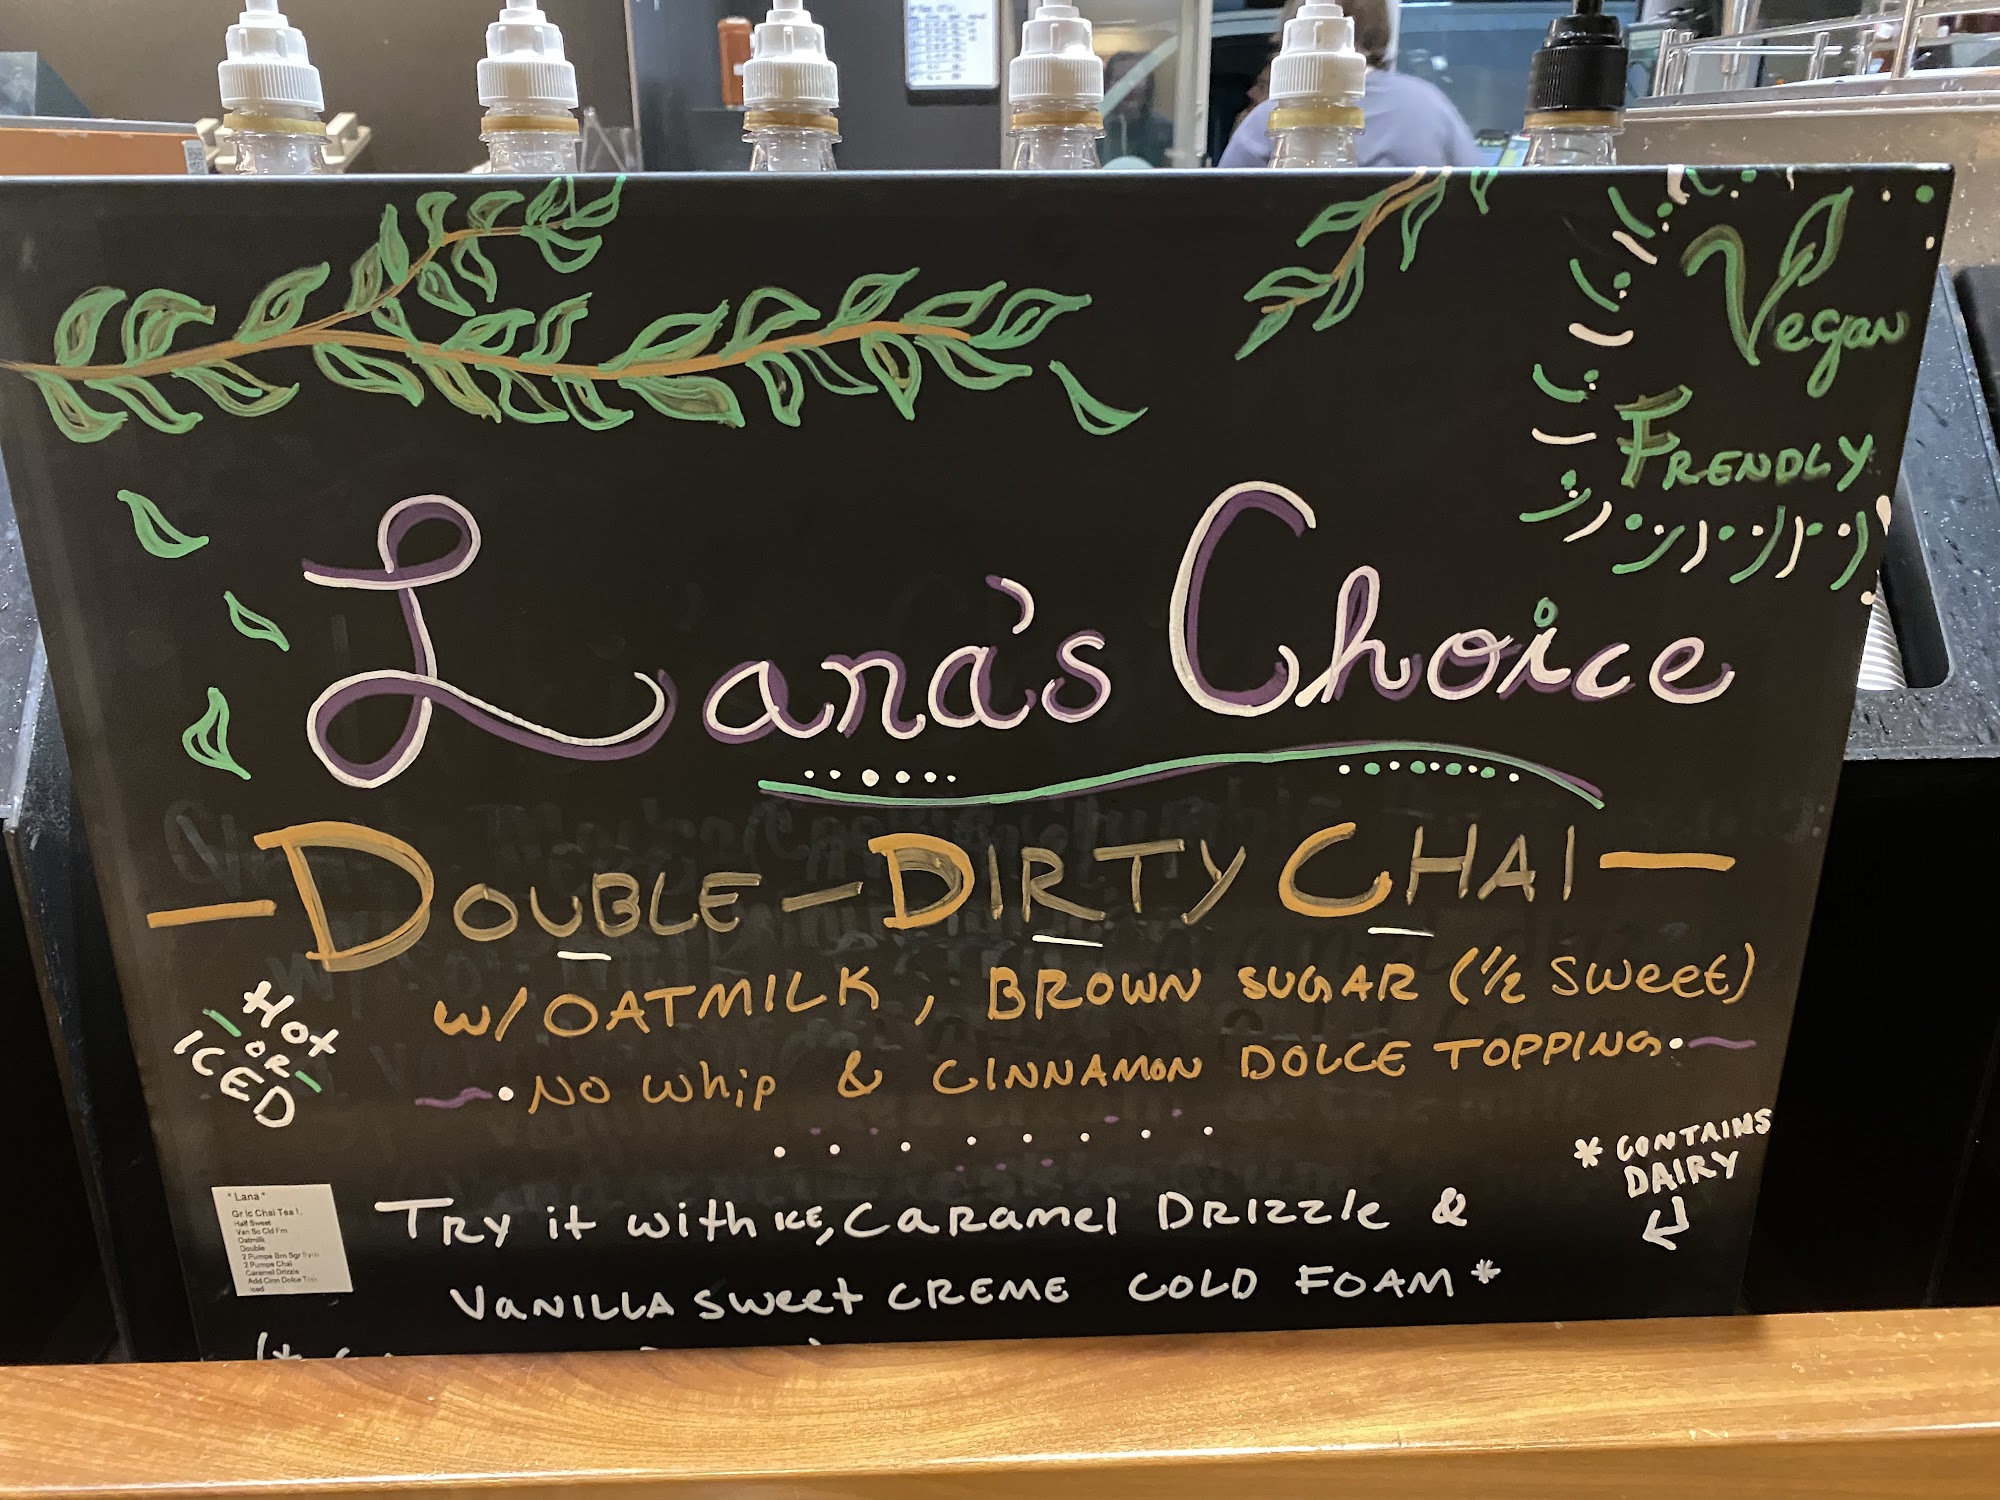 Vegan
FRENDLY
Lana's Choice
— DOUBLE — DIRTY CHAI —
W/ OATMILK, BROWN SUGAR (½ Sweet)
NO Whip & CINNAMON DOLCE TOPPING
Hot
OR
ICED
* CONTAINS
DAIRY
TRY it with ICE, CaRamel DRizzle &
VaNILLA Sweet CREME COLD FOAM *
* Lana *
Gr Ic Chai Tea L
Half Sweet
Van Sc Cld Fm
Oatmilk
Double
2 Pumps Brn Sgr
2 Pumps Chai
Caramel Drizzle
Add Cinn Dolce
Iced